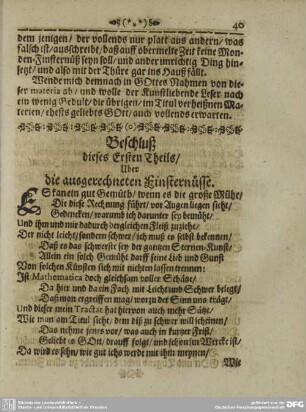 (*,*)
40
dem jenigen / der vollends nur platt aus andern / was
falsch ist / ausschreibt / daß auff obermelte Zeit keine Mon-
den-Finsternüß seyn soll / und ander unrichtig Ding hin-
setzt / und also mit der Thüre gar ins Hauß fällt.
Wende mich demnach in GOttes Nahmen von die-
ser materia ab / und wolle der Kunstliebende Leser nach
ein wenig Gedult / die übrigen / im Titul verheißnen Ma-
terien / ehests geliebts GOtt / auch vollends erwarten.
Beschluß
dieses Ersten Theils /
Uber
die ausgerechneten Finsternüsse.
ES kan ein gut Gemüth / wenn es die große Mühe /
Die diese Rechnung führt / vor Augen liegen sieht /
Gedencken / warumb ich darunter sey bemüht /
Und ihn und mir dadurch dergleichen Fleiß zuziehe /
Der nicht leicht / sondern schwer / ich muß es selbst bekennen /
Daß es das schwerste sey der gantzen Sternen-Kunst /
Allein ein solch Gemüht darff seine Lieb und Gunst
Von solchen Künsten sich mit nichten lassen trennen:
Ist Mathematica doch gleichsam als eine Schüle /
Da hier und da ein Fach mit Leicht und Schwer belegt /
Daß man ergreiffen mag / worzu der Sinn uns trägt /
Und dieser mein Tractat hat hiervon auch mehr Sätze /
Wie man am Titul sieht / dem biß zu schwer will scheinen /
Das nehme jens vor / was auch in kurtzer Frist /
Geliebt es GOtt / drauff folgt / und schon im Wercke ist /
Da wird er sehn / wie gut ichs werde mit ihm meynen /
Wie